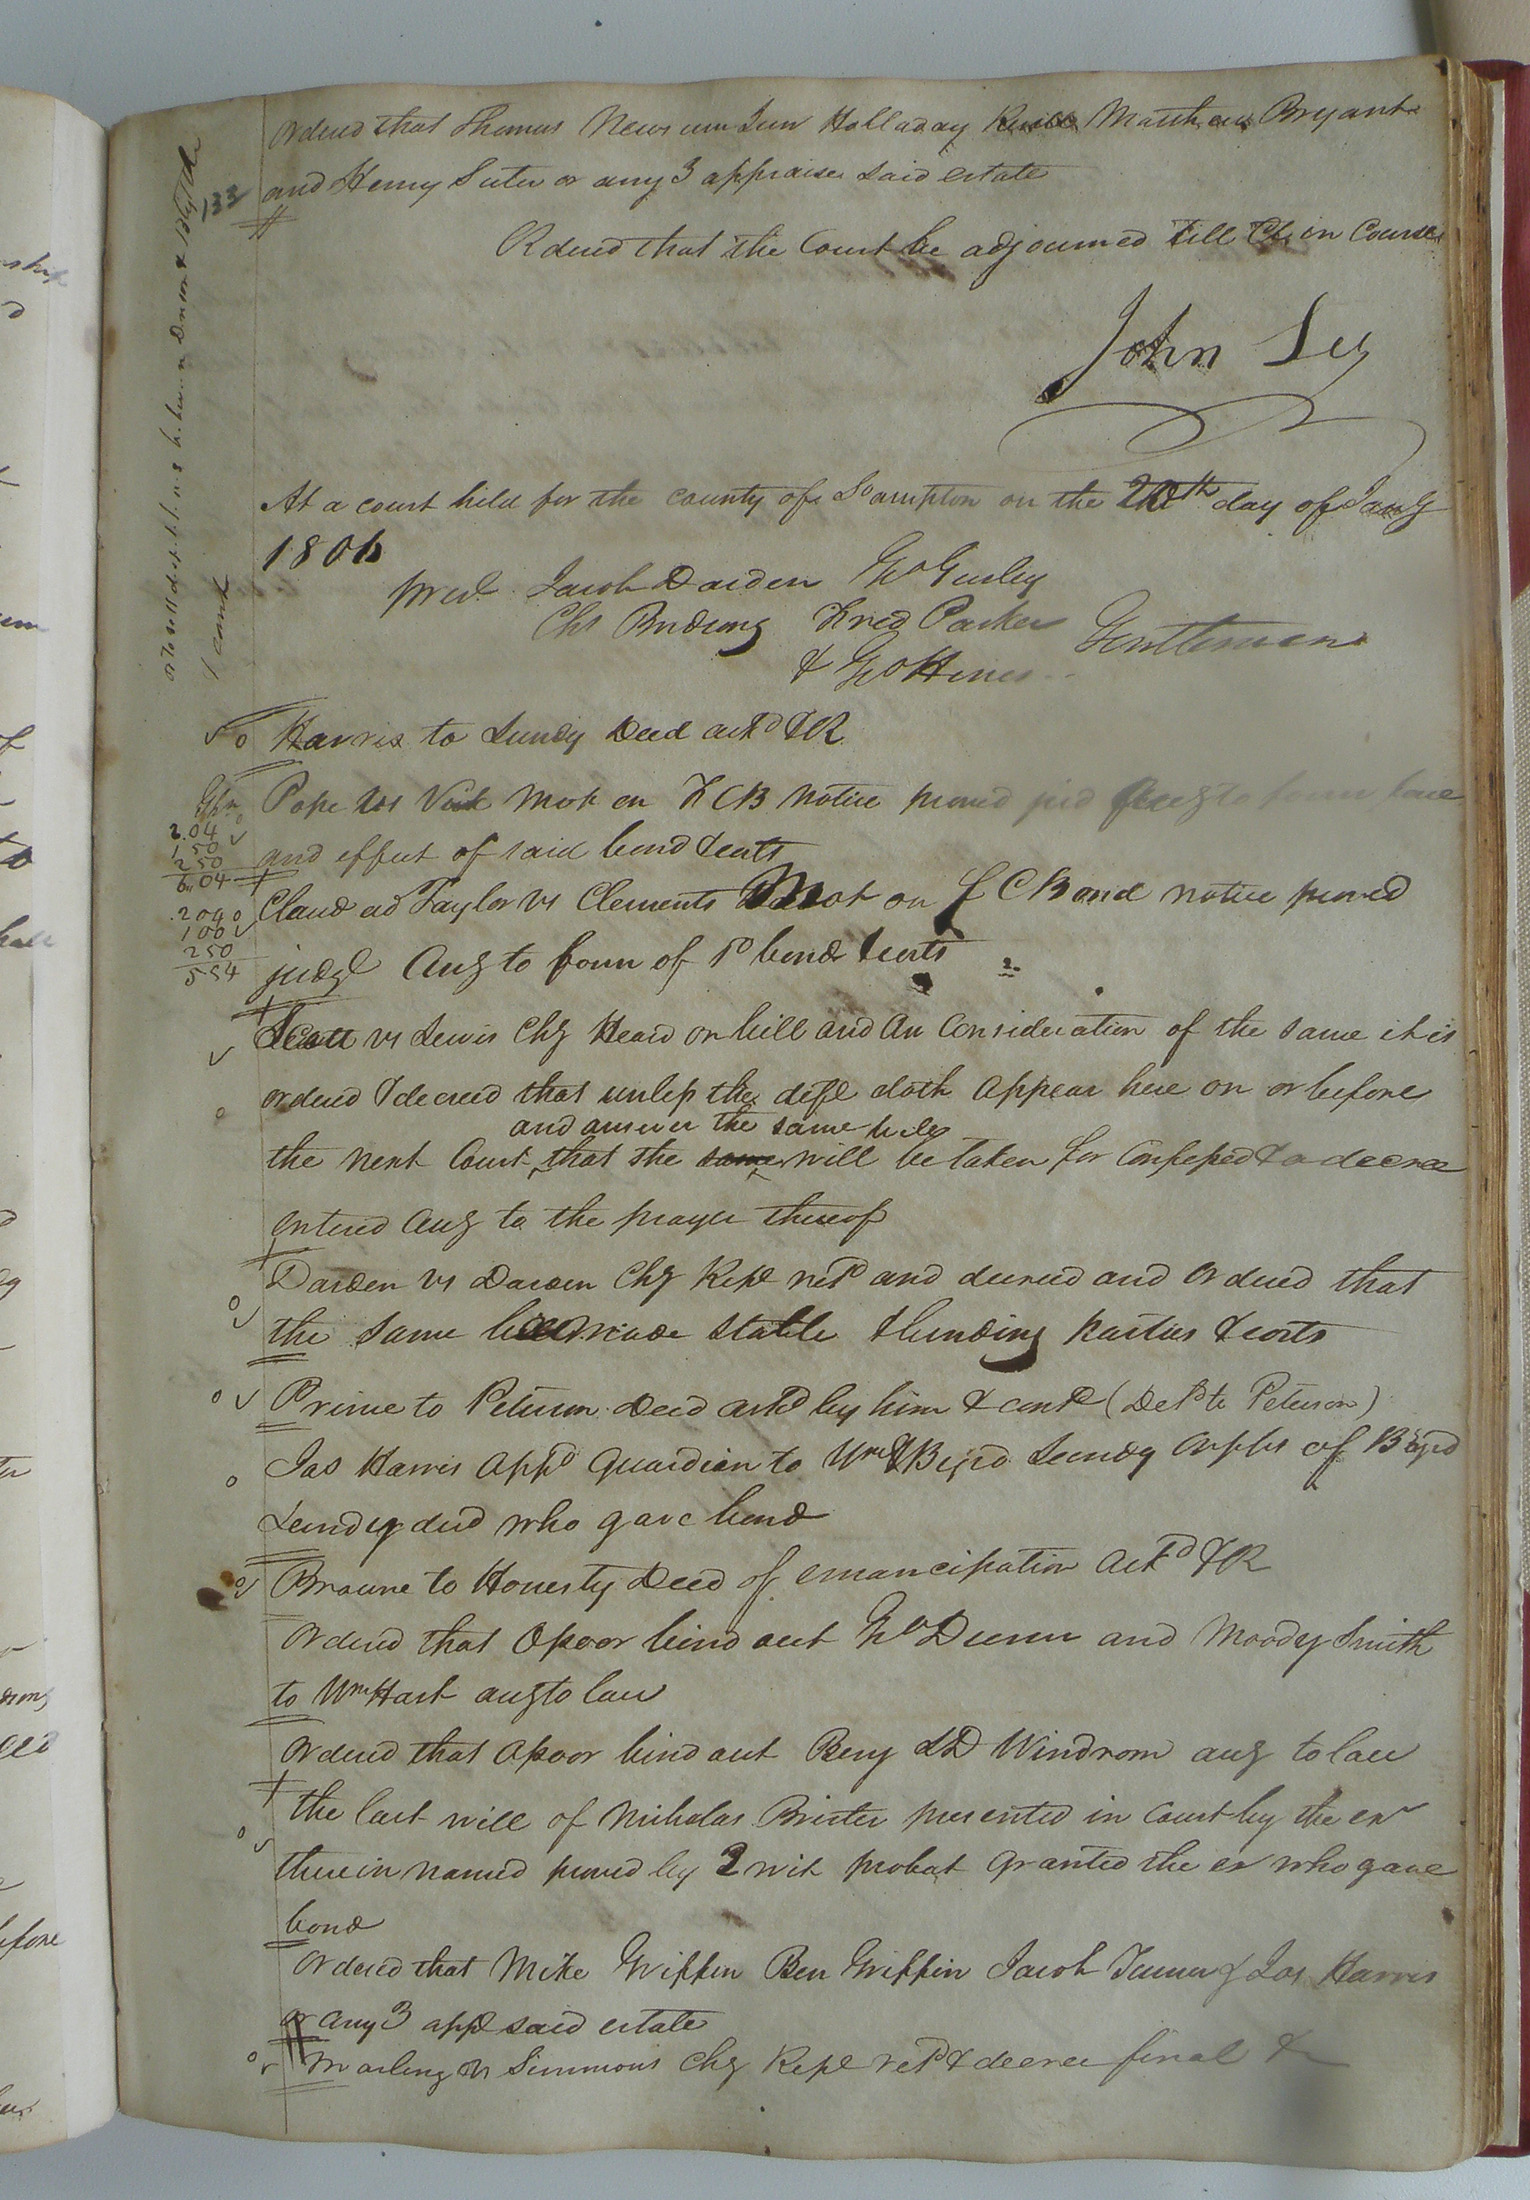 Ordered that Thomas Newsum Jun Holladay Matthew Bryant
and Henry Suter or any 3 appraise said estate
133
Ordered that the Court be adjourned till Ct in Course
John
At a court held for the county of So ampton on the 20th day of Jany
1806
pres. Jacob Darden Go Gurley
Chs Fred Parker
Gentlemen
& Go Hines
Harris to Lundy Deed ackd & R
Pope vs Vick Mot on F C B Notice proved jud form force
and effect of said bond & costs
2.04
1 50
2 50
6.04
Claud ad Taylor vs Clements Mot on f C B and notice proved
judgt Aug to form of sd bond & costs
2 04
1 00
2 50
5 54
Scott vs Lewis Chy Heard on bill and on Consideration of the same it is
ordered & decreed that unless the deft doth appear here on or before
and answer the same bill
the next Court that the same will be taken for Confessed & a decree
entered aug to the prayer thereof
Darden vs Darden Chy Rept retd and decreed and Ordered that
the same be made stable & binding parties & costs
Prime to Peterson Deed ackd by him & cont (Deld to Peterson)
Jas Harris Appd Guardian to Wm & Byrd Lundy orphs of Byrd
Lundy decd who gave bond
Browne to Honesty Deed of emancipation Ackd & R
Ordered that Opoor bind out Go Dunn and Moody Smith
to Wm Hart aug to law
Ordered that Opoor bind out Benj Windrom aug to law
the last will of Nicholas Brister presented in Court by the exr
therein named proved by 2 wit probat granted the ex who gave
bond
Ordered that Mike Griffin Ben Griffin Jacob Turner & Jas Harris
or any 3 appe said estate
vs Simmons Chy Rept retd & decree final &